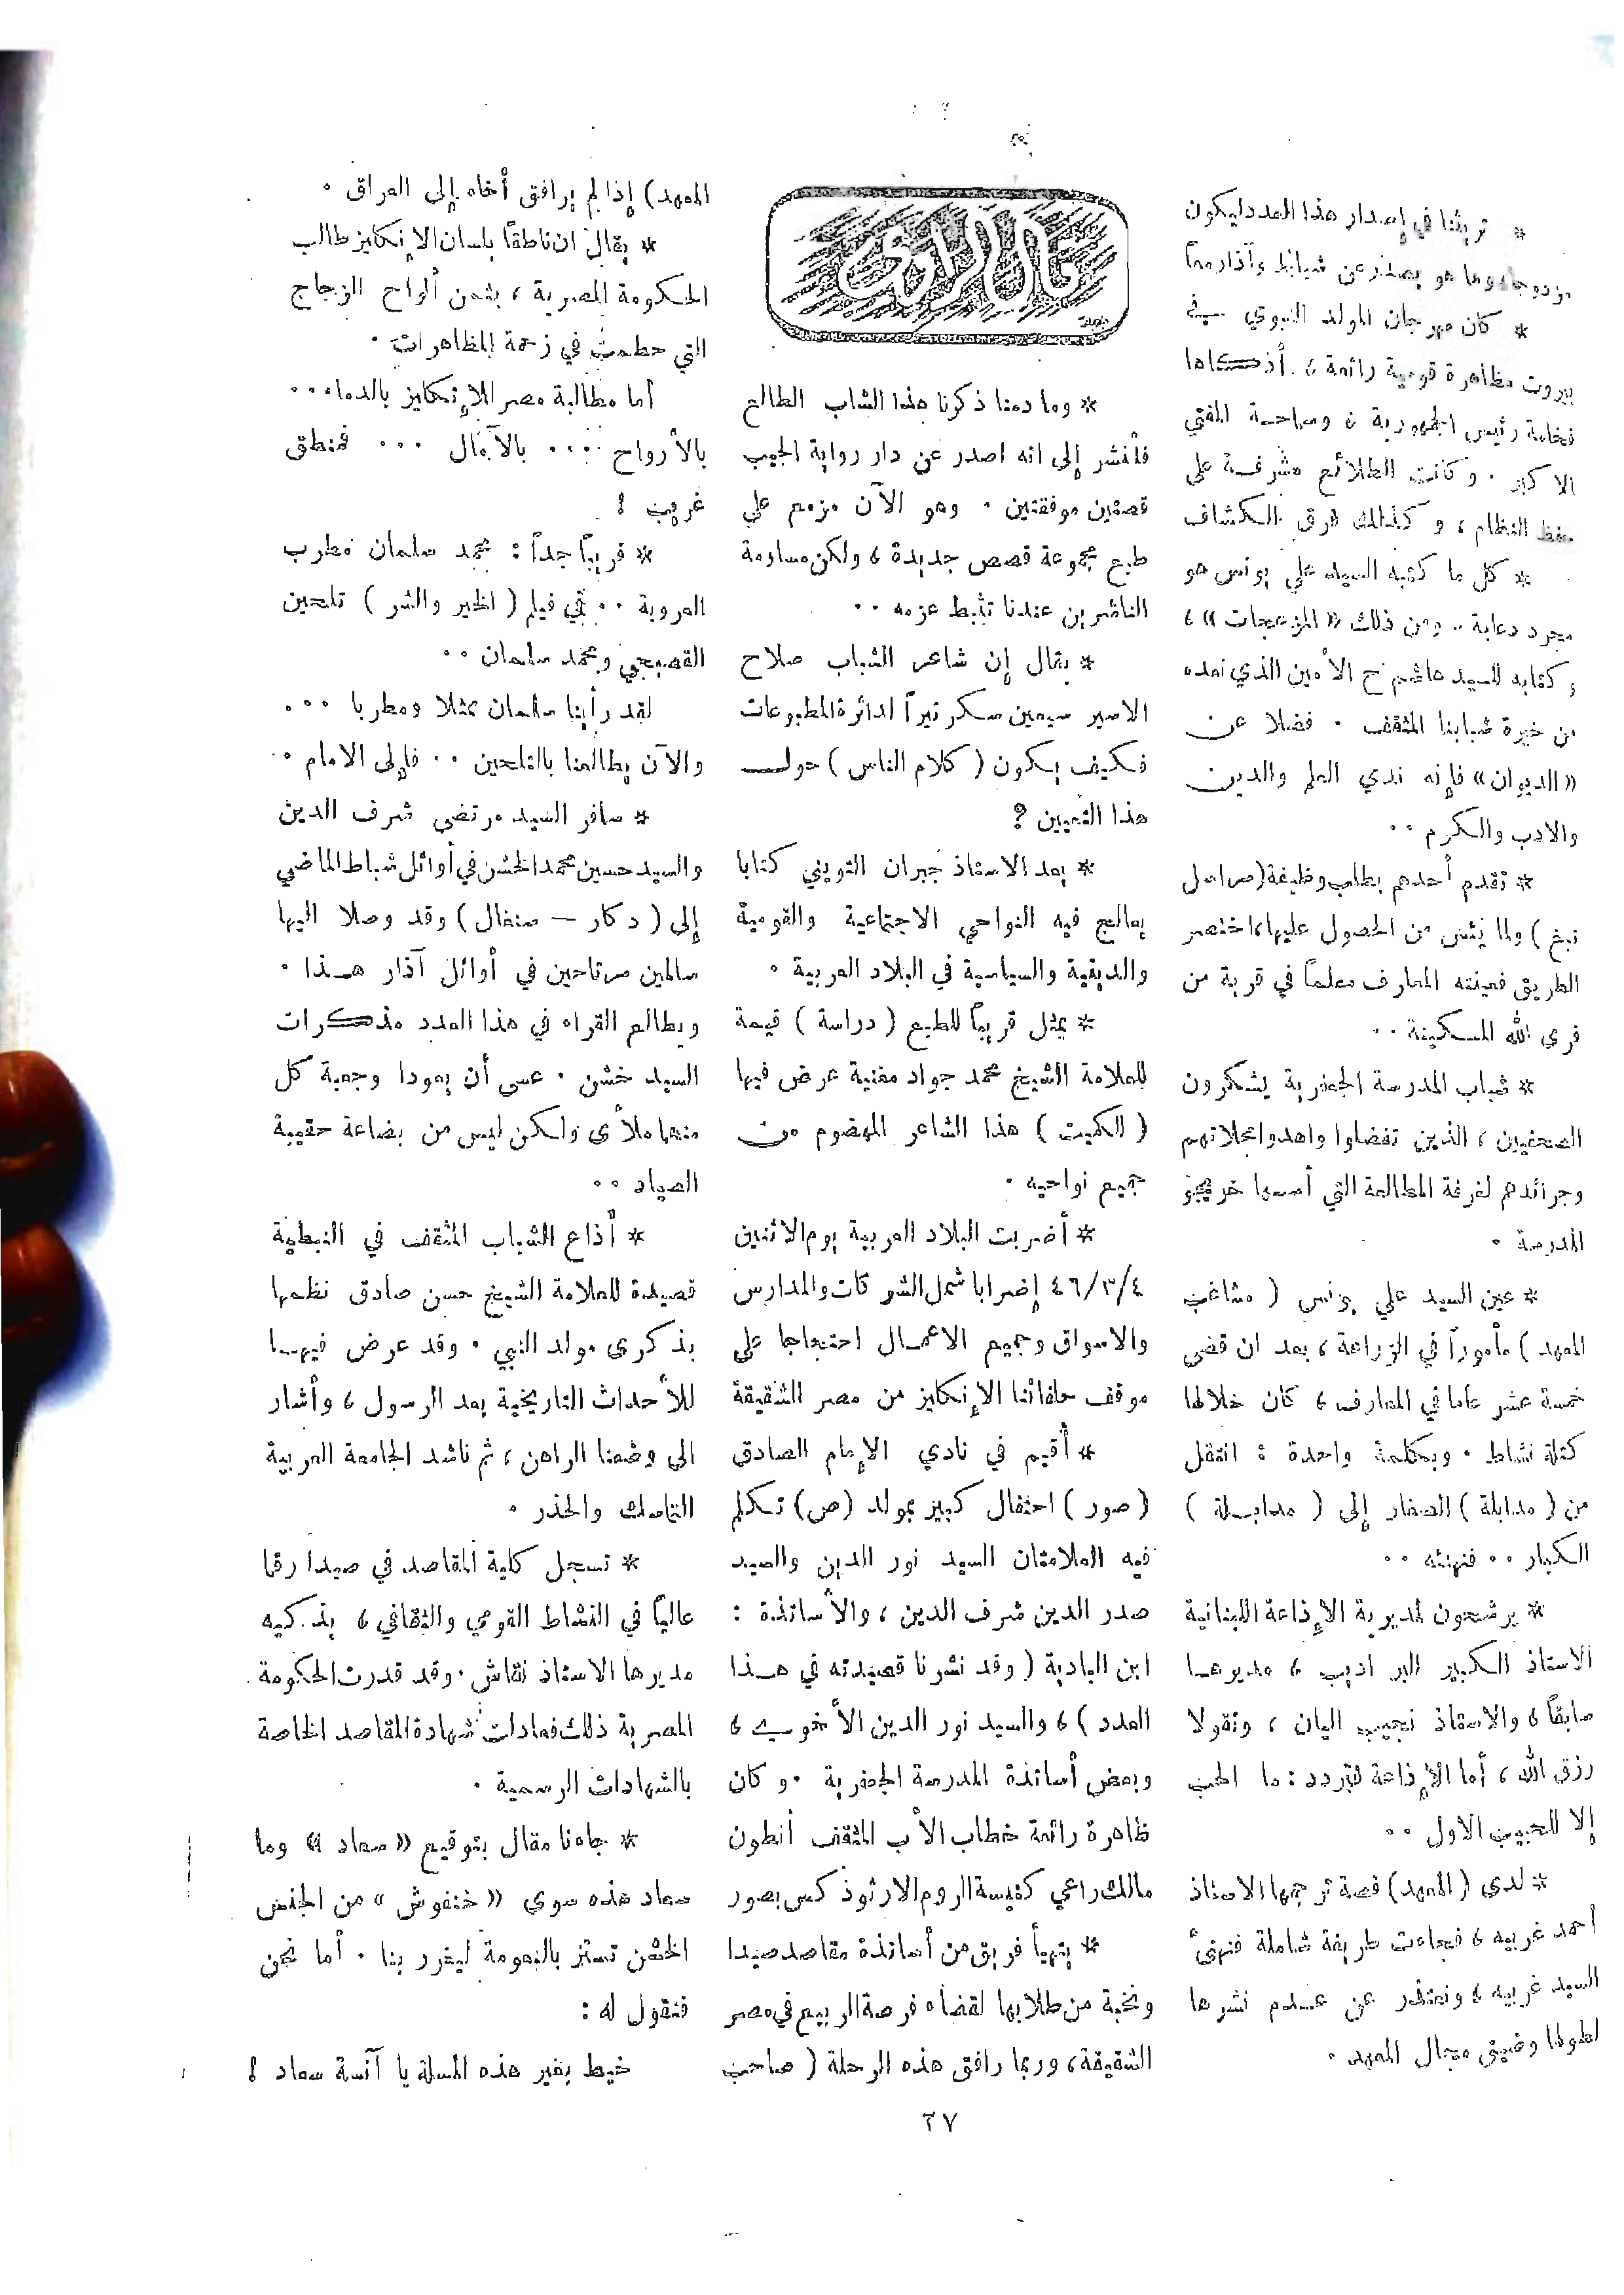 * تريثنا في إصدار هذا العدد ليكون
مزدوجا، وها هو يصدر عن شباط وآذار معاً
* كان مهرجان المولد النبوي في
بيروت مظاهرة قومية رائعة، أذكاها
فخامة رئيس الجمهورية، وسماحة المفتي
الاكبر. وكانت الطلائع مشرفة على
حفظ النظام، وكذلك فرق الكشاف
* كل ما كتبه السيد علي يونس هو
مجرد دعابة.. ومن ذلك «المزعجات»،
وكتابه للسيد هاشم ح الأمين الذي نعده
من خيرة شبابنا المثقف. فضلا عن
«الديوان» فإنه ندي العلم والدين
والادب والكرم..
* تقدم أحدهم بطلب وظيفة (مراسل
تبغ) ولما يئس من الحصول عليها، اختصر
الطريق فعينته المعارف معلماً في قرية من
قرى الله المسكينة..
* شباب المدرسة الجعفرية يشكرون
الصحفيين، الذين تفضلوا واهدوا مجلاتهم
وجرائدهم لغرفة المطالعة التي أسسها خريجو
المدرسة.
* عين السيد علي يونس (مشاغب
المعهد) مأموراً في الزراعة، بعد ان قضى
خمسة عشر عاما في المعارف، كان خلالها
كتلة نشاط. وبكلمة واحدة: انتقل
من (مدابلة) الصغار إلى (مدابلة)
الكبار.. فنهنئه..
* يرشحون لمديرية الإذاعة اللبنانية
الاستاذ الكبير البر اديب، مديرها
سابقاً، والاستاذ نجيب اليان، ونقولا
رزق الله، أما الإذاعة فتردد: ما الحب
إلا للحبيب الاول..
* لدى (المعهد) قصة ترجمها الاستاذ
أحمد غربيه، فجاءت طريفة شاملة فنهنئ
السيد غربيه، ونعتذر عن عدم نشرها
لطولها وضيق مجال المعهد.
* وما دمنا ذكرنا هذا الشاب الطالع
فلنشر إلى انه اصدر عن دار رواية الجيب
قصتين موفقتين. وهو الآن مزمع على
طبع مجموعة قصص جديدة، ولكن مساومة
الناشرين عندنا تثبط عزمه..
* يقال إن شاعر الشباب صلاح
الاسير سيعين سكرتيراً لدائرة المطبوعات
فكيف يكون (كلام الناس) حول
هذا التعيين؟
* يعد الاستاذ جبران التويني كتابا
يعالج فيه النواحي الاجتماعية والقومية
والدينية والسياسية في البلاد العربية.
* يمثل قريباً للطبع (دراسة) قيمة
للعلامة الشيخ محمد جواد مغنية عرض فيها
(للكميت) هذا الشاعر المهضوم من
جميع نواحيه.
* أضربت البلاد العربية يوم الاثنين
٤/٣/٤٦ إضرابا شمل الشركات والمدارس
والاسواق وجميع الاعمال احتجاجا على
موقف حلفائنا الإنكليز من مصر الشقيقة
* أقيم في نادي الإمام الصادق
(صور) احتفال كبير بمولد (ص) تكلم
فيه العلامتان السيد نور الدين والسيد
صدر الدين شرف الدين، والأساتذة:
ابن البادية (وقد نشرنا قصيدته في هذا
العدد)، والسيد نور الدين الأخوي،
وبعض أساتذة المدرسة الجعفرية. وكان
ظاهرة رائعة خطاب الأب المثقف أنطون
مالك راعي كنيسة الروم الارثوذكس بصور
* يتهيأ فريق من أساتذة مقاصد صيدا
ونخبة من طلابها لقضاء فرصة الربيع في مصر
الشقيقة، وربما رافق هذه الرحلة (صاحب
المعهد) إذا لم يرافق أخاه إلى العراق.
* يقال ان ناطقاً بلسان الإنكليز طالب
الحكومة المصرية، بثمن ألواح الزجاج
التي حطمت في زحمة المظاهرات.
أما مطالبة مصر للإنكليز بالدماء...
بالأرواح... بالآمال... فمنطق
غريب!
* قريباً جداً: محمد سلمان مطرب
العروبة.. في فيلم (الخير والشر) تلحين
القصبجي ومحمد سلمان..
لقد رأينا سلمان ممثلا ومطربا...
والآن يطالعنا بالتلحين.. فإلى الامام.
* سافر السيد مرتضى شرف الدين
والسيد حسين محمد الخشن في أوائل شباط الماضي
إلى (دكار — سنغال) وقد وصلا اليها
سالمين مرتاحين في أوائل آذار هذا.
ويطالع القراء في هذا العدد مذكرات
السيد خشن. عسى أن يعودا وجعبة كل
منهما ملأى ولكن ليس من بضاعة حقيبة
الصياد..
* أذاع الشباب المثقف في النبطية
قصيدة للعلامة الشيخ حسن صادق نظمها
بذكرى مولد النبي. وقد عرض فيها
للأحداث التاريخية بعد الرسول، وأشار
الى وضعنا الراهن، ثم ناشد الجامعة العربية
التماسك والحذر.
* تسجل كلية المقاصد في صيدا رقما
عالياً في النشاط القومي والثقافي، يذكيه
مديرها الاستاذ نقاش. وقد قدرت الحكومة
المصرية ذلك فعادلت شهادة المقاصد الخاصة
بالشهادات الرسمية.
* جاءنا مقال بتوقيع «سعاد» وما
سعاد هذه سوى «خنفوش» من الجنس
الخشن تستر بالنعومة ليغرر بنا. أما نحن
فنقول له:
خيط بغير هذه المسلة يا آنسة سعاد!
٢٧